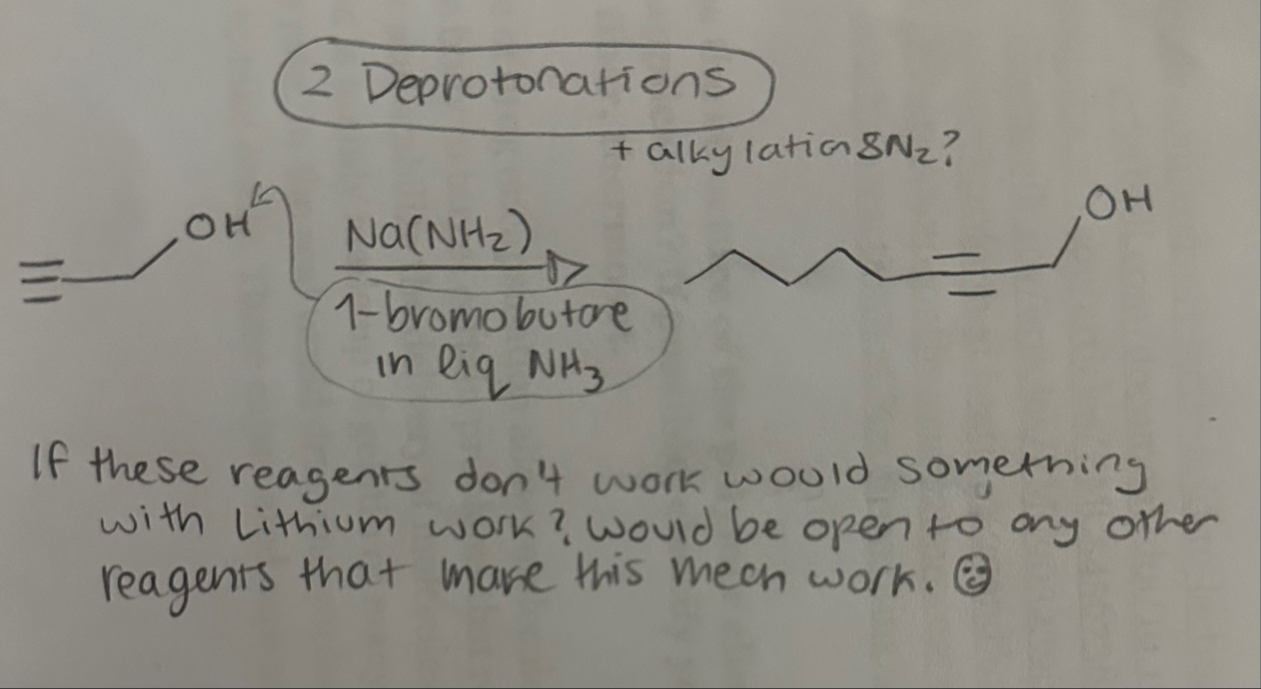 2 Deprotonations
+ alkylation SN2?
OH
Na(NH2)
OH
1-bromobutane
in liq NH3
If these reagents don't work would something
with Lithium work? Would be open to any other
reagents that make this mech work.